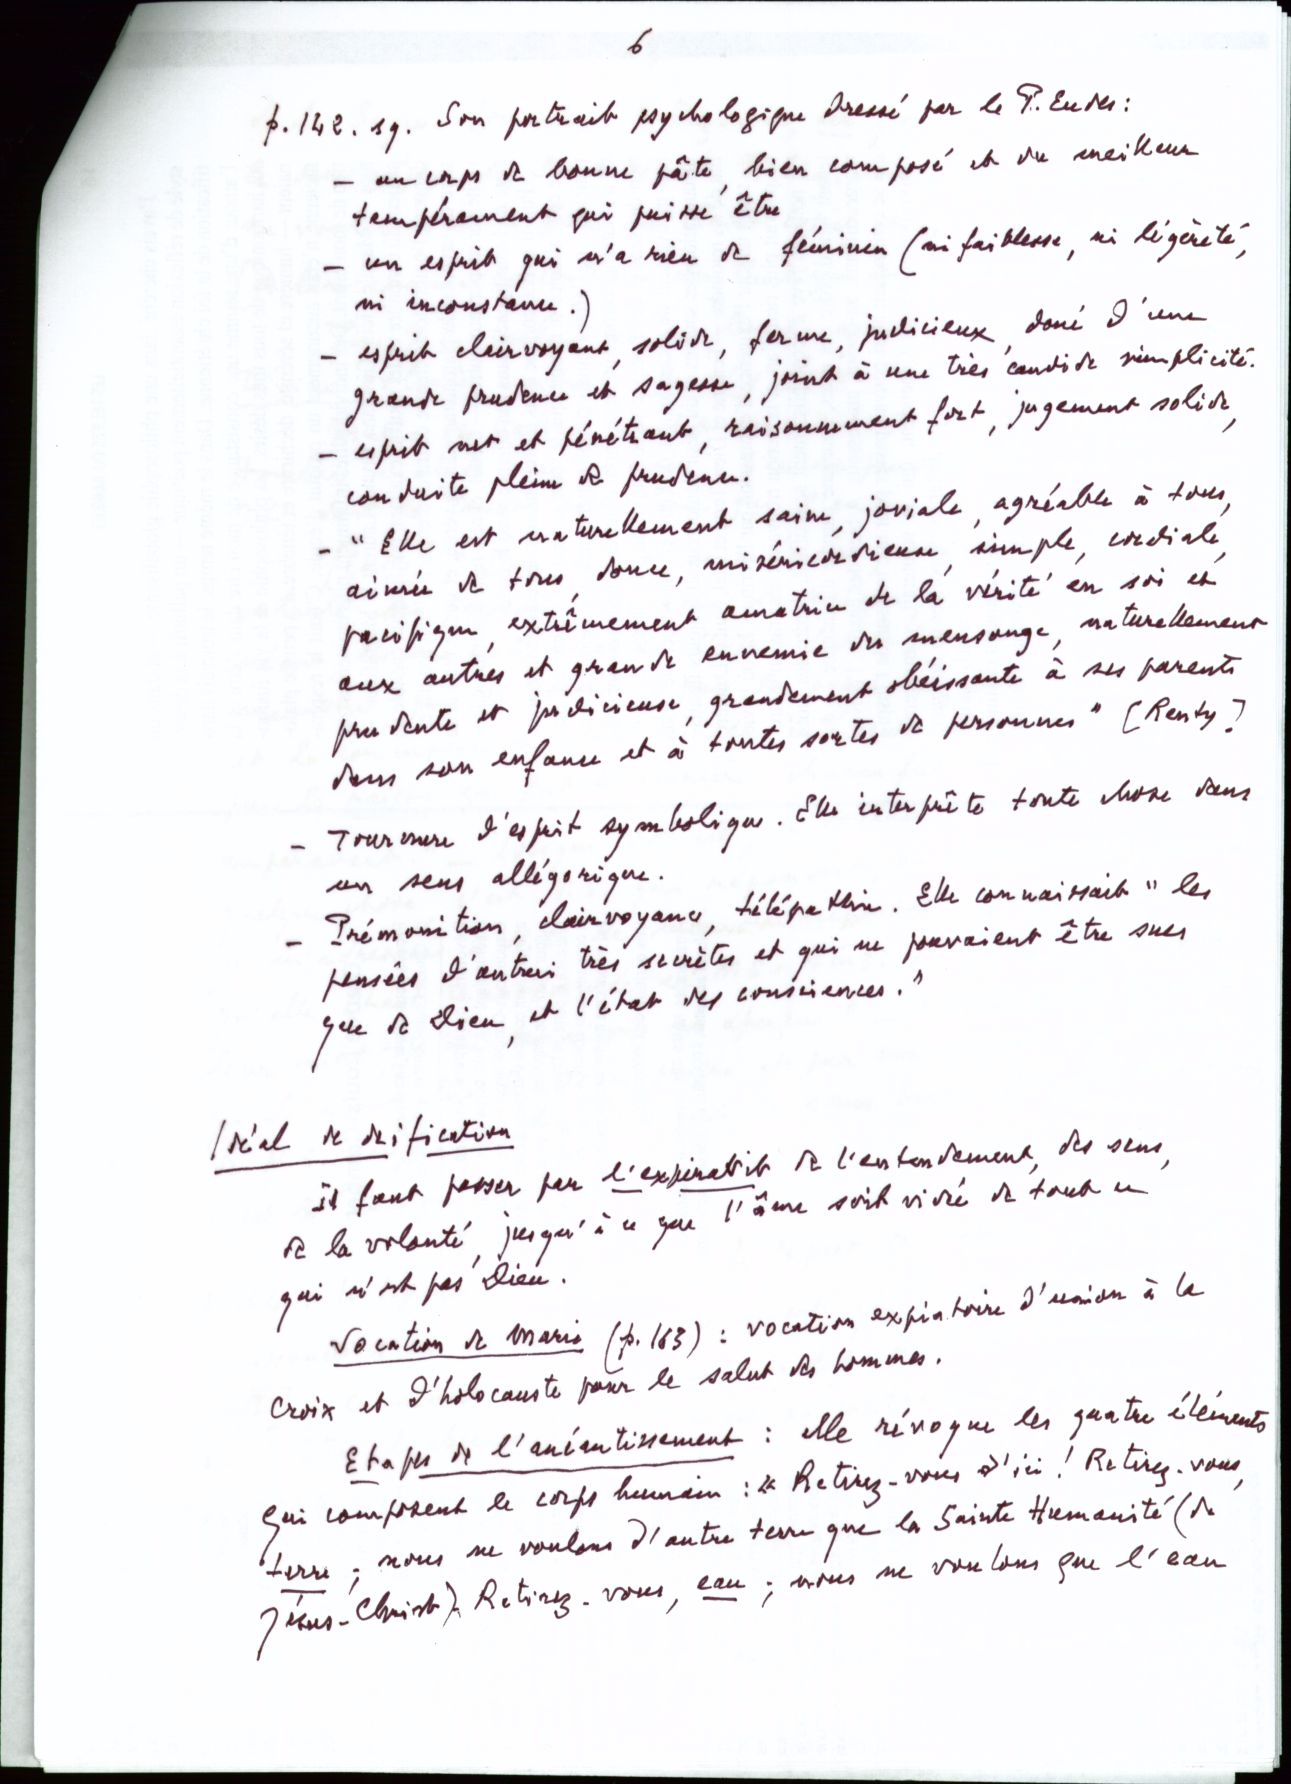 6
p. 142. sq. Son portrait psychologique dressé par le P. Eudes :
– un corps de bonne pâte, bien composé et du meilleur
tempérament qui puisse être
– un esprit qui n'a rien de féminin (ni faiblesse, ni légèreté,
ni inconstance.)
– esprit clairvoyant, solide, ferme, judicieux, doué d'une
grande prudence et sagesse, joint à une très candide simplicité.
– esprit net et pénétrant, raisonnement fort, jugement solide,
conduite pleine de prudence.
– " Elle est naturellement saine, joviale, agréable à tous,
aimée de tous, douce, miséricordieuse, simple, cordiale,
pacifique, extrêmement amatrice de la vérité en soi et
aux autres et grande ennemie du mensonge, naturellement
prudente et judicieuse, grandement obéissante à ses parents
dans son enfance et à toutes sortes de personnes " (Renty)
– Tournure d'esprit symbolique. Elle interprète toute chose dans
un sens allégorique.
– Prémonition, clairvoyance, télépathie. Elle connaissait " les
pensées d'autrui très secrètes et qui ne pouvaient être sues
que de Dieu, et l'état des consciences. "
Idéal de déification
Il faut passer par l'expiration de l'entendement, des sens,
de la volonté, jusqu'à ce que l'âme soit vidée de tout ce
qui n'est pas Dieu.
Vocation de Marie (p. 163) : vocation expiatoire d'union à la
Croix et d'holocauste pour le salut des hommes.
Etapes de l'anéantissement : elle révoque les quatre éléments
qui composent le corps humain : « Retirez-vous d'ici ! Retirez-vous,
terre ; nous ne voulons d'autre terre que la Sainte Humanité (de
Jésus-Christ). Retirez-vous, eau ; nous ne voulons que l'eau